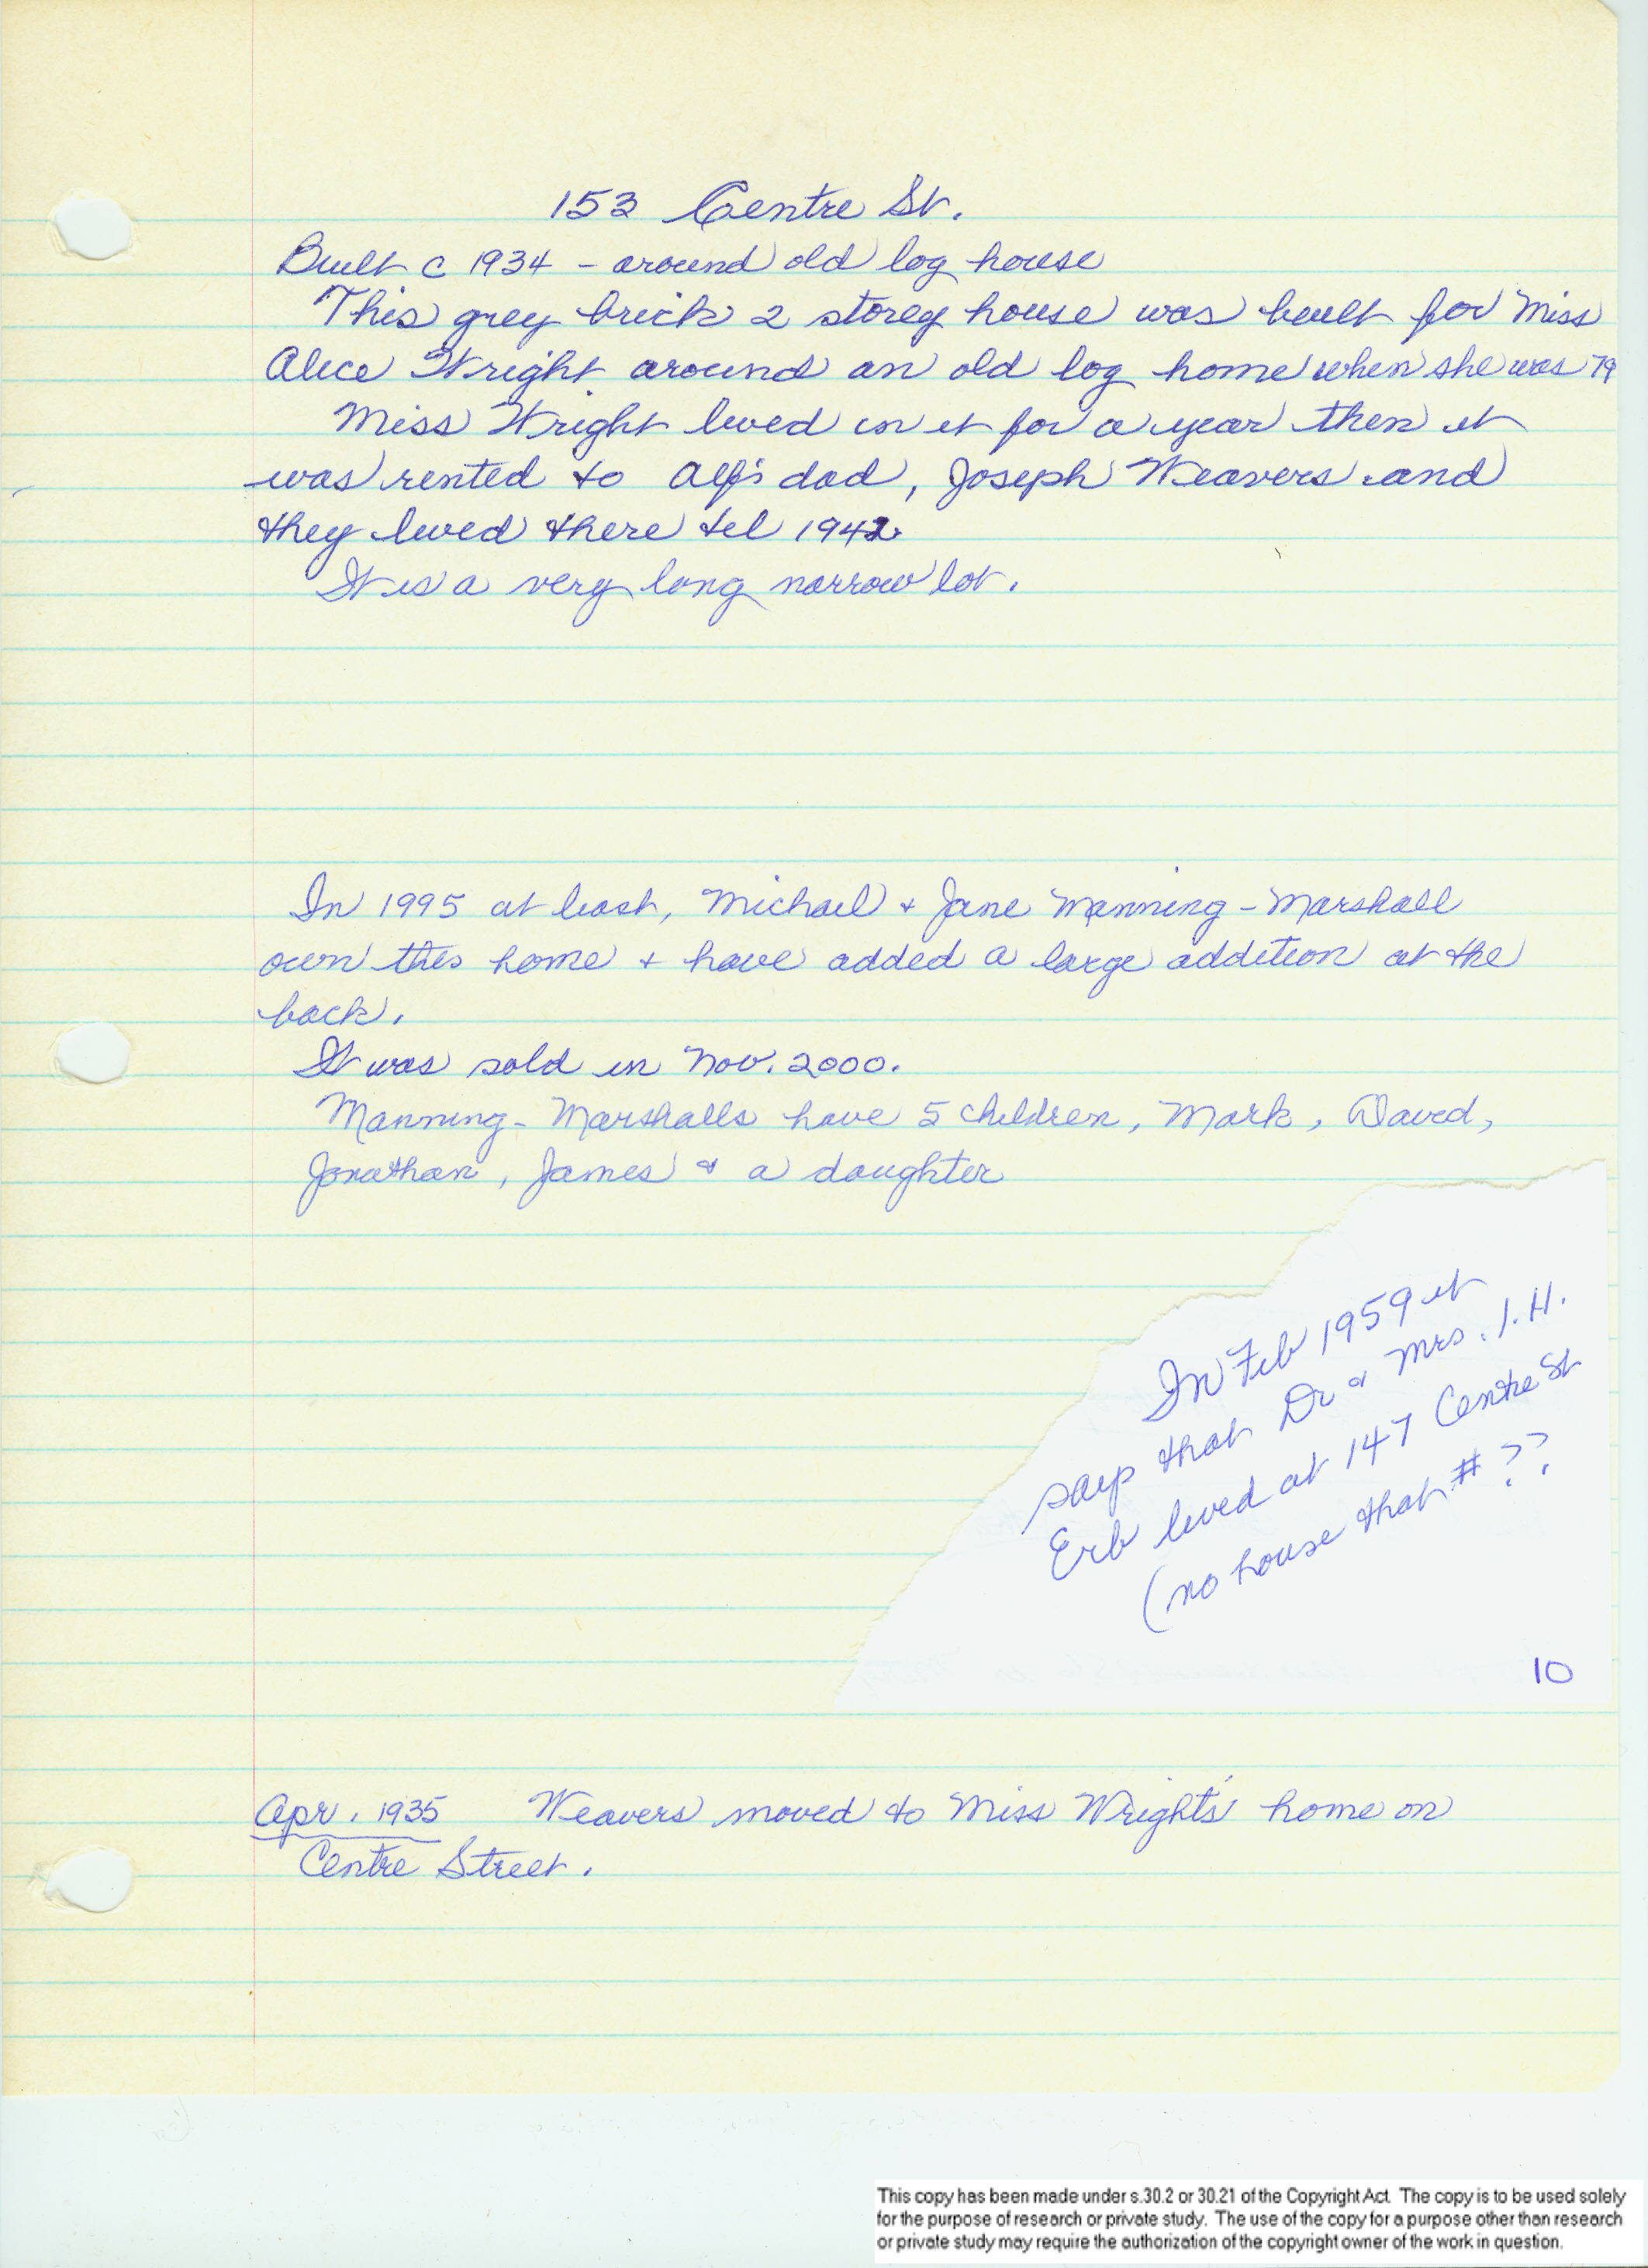 153 Centre St.
Built c 1934 - around old log house
This grey brick 2 storey house was built for Miss
Alice Wright around an old log home when she was 79
Miss Wright lived in it for a year then it
was rented to Alf's dad, Joseph Weavers and
they lived there til 1942
It is a very long narrow lot.
In 1995 at least, Michael + Jane Manning-Marshall
own this home + have added a large addition at the
back.
It was sold in Nov. 2000.
Manning-Marshalls have 5 children, Mark, David,
Jonathan, James + a daughter
In Feb 1959 it
says that Dr + Mrs. I. H.
Erb lived at 147 Centre St
(no house that # ??
10
Apr. 1935 Weavers moved to Miss Wright's home on
Centre Street.
This copy has been made under s.30.2 or 30.21 of the Copyright Act. The copy is to be used solely
for the purpose of research or private study. The use of the copy for a purpose other than research
or private study may require the authorization of the copyright owner of the work in question.